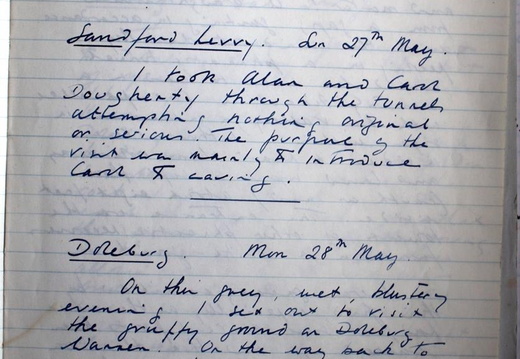 Sandford Levvy. Sun 27th May.
I took Alan and Carol
Dougherty through the tunnels
attempting nothing original
or serious. The purpose of the
visit was mainly to introduce
Carol to caving.
Dolebury. Mon 28th May.
On this grey, wet, blustery
evening I set out to visit
the gruffy ground on Dolebury
Warren. On the way back to